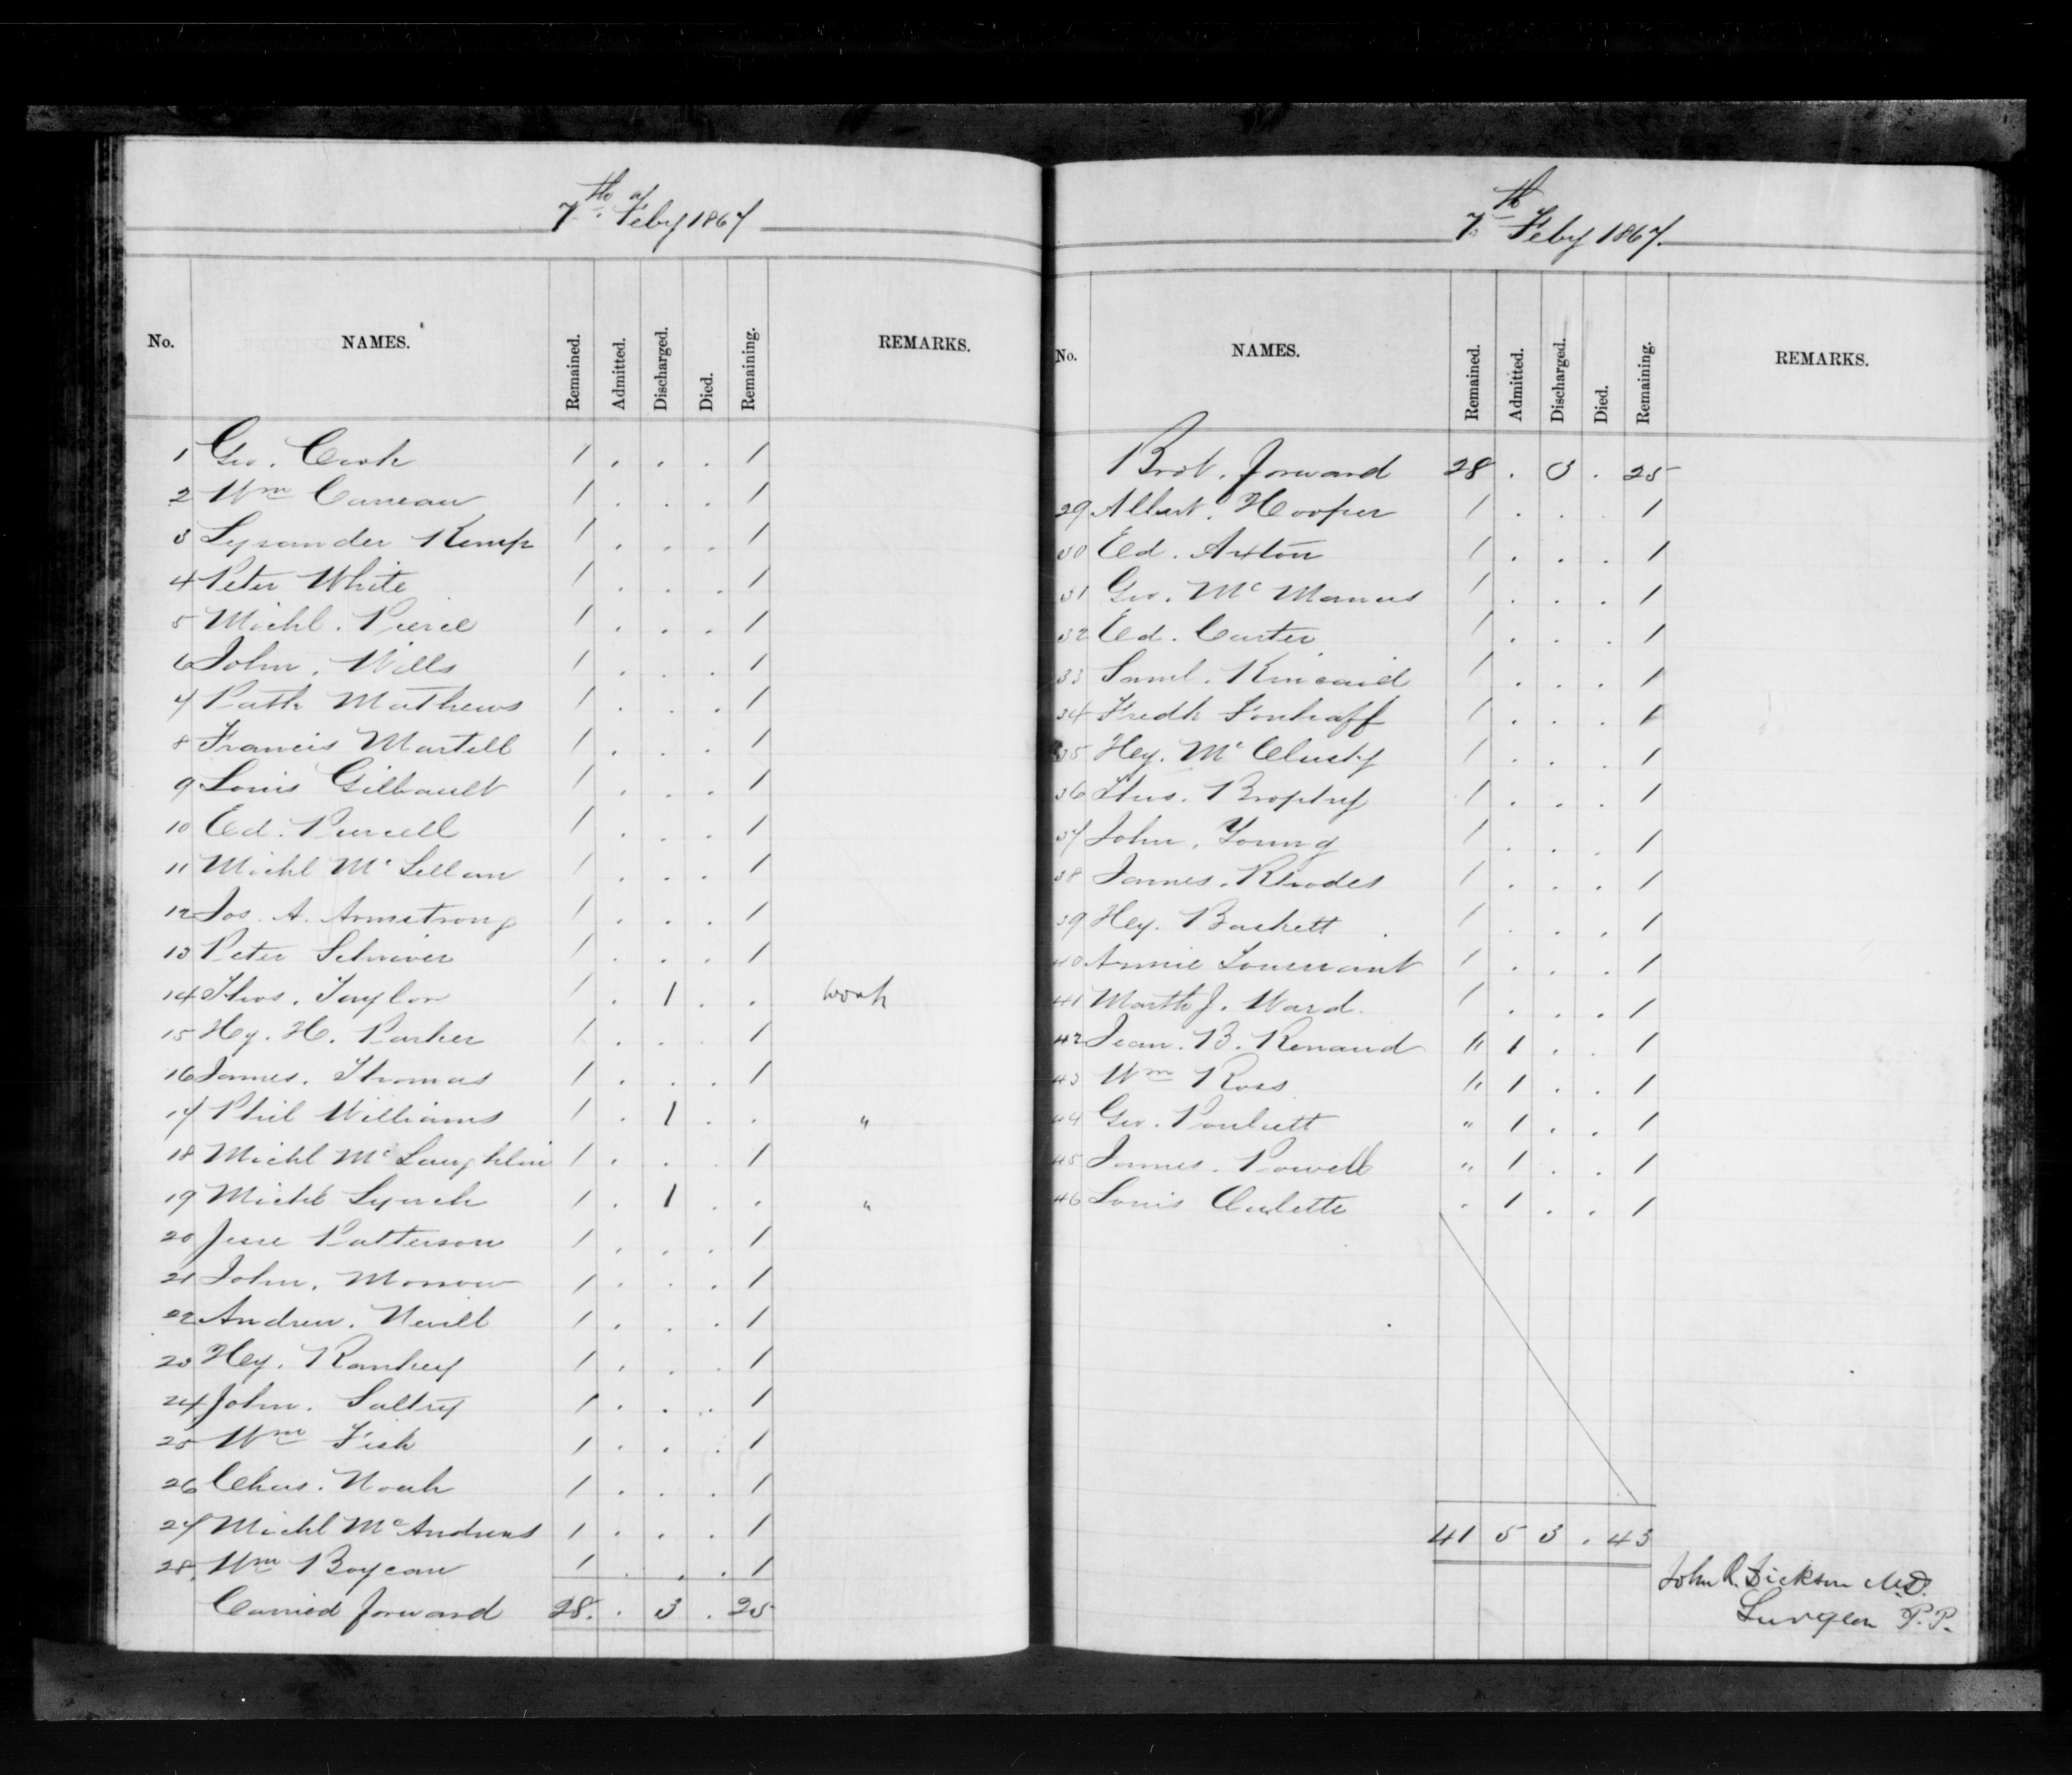 7th of Feby 1867
No. NAMES. Remained. Admitted. Discharged. Died. Remaining. REMARKS.
1 Geo. Cook 1 . . . 1
2 Wm Caneau 1 . . . 1
3 Lysander Kemp 1 . . . 1
4 Peter White 1 . . . 1
5 Michl. Pierce 1 . . . 1
6 John. Wills 1 . . . 1
7 Patk Mathews 1 . . . 1
8 Francis Martell 1 . . . 1
9 Louis Gilbault 1 . . . 1
10 Ed. Purcell 1 . . . 1
11 Michl Mc Lellan 1 . . . 1
12 Jos. A. Armstrong 1 . . . 1
13 Peter Schriver 1 . . . 1
14 Thos. Taylor 1 . 1 . . work
15 Hy. H. Parker 1 . . . 1
16 James. Thomas 1 . . . 1
17 Phil Williams 1 . 1 . . "
18 Michl Mc Laughlin 1 . . . 1
19 Michl Lynch 1 . 1 . . "
20 Jesse Patterson 1 . . . 1
21 John. Morrow 1 . . . 1
22 Andrew. Nevill 1 . . . 1
23 Hey. 1 . . . 1
24 John. Saltry 1 . . . 1
25 Wm Fish 1 . . . 1
26 Chas. Noah 1 . . . 1
27 Michl Mc Andrews 1 . . . 1
28. Wm Boycan 1 . . . 1
Carried forward 28. . 3 . 25
7th Feby 1867.
No. NAMES. Remained. Admitted. Discharged. Died. Remaining. REMARKS.
Brot. forward 28 . 3 . 25
29 Albert. Hooper 1 . . . 1
30 Ed. Axton 1 . . . 1
31 Geo. Mc Manus 1 . . . 1
32 Ed. Carter 1 . . . 1
33 Saml. Kincaid 1 . . . 1
34 Fredk 1 . . . 1
35 Hey. Mc Clusky 1 . . . 1
36 Thos. Brophy 1 . . . 1
37 John. Young 1 . . . 1
38 James. Rhodes 1 . . . 1
39 Hey. Baskett 1 . . . 1
40 Annie 1 . . . 1
41 Marth J. Ward. 1 . . . 1
42 Jean. B. Renaud " 1 . . 1
43 Wm Ross " 1 . . 1
44 Geo. " 1 . . 1
45 James. Powell " 1 . . 1
46 Louis Oulette . 1 . . 1
41 5 3 . 43
John R. Dickson M.D.
Surgeon P.P.